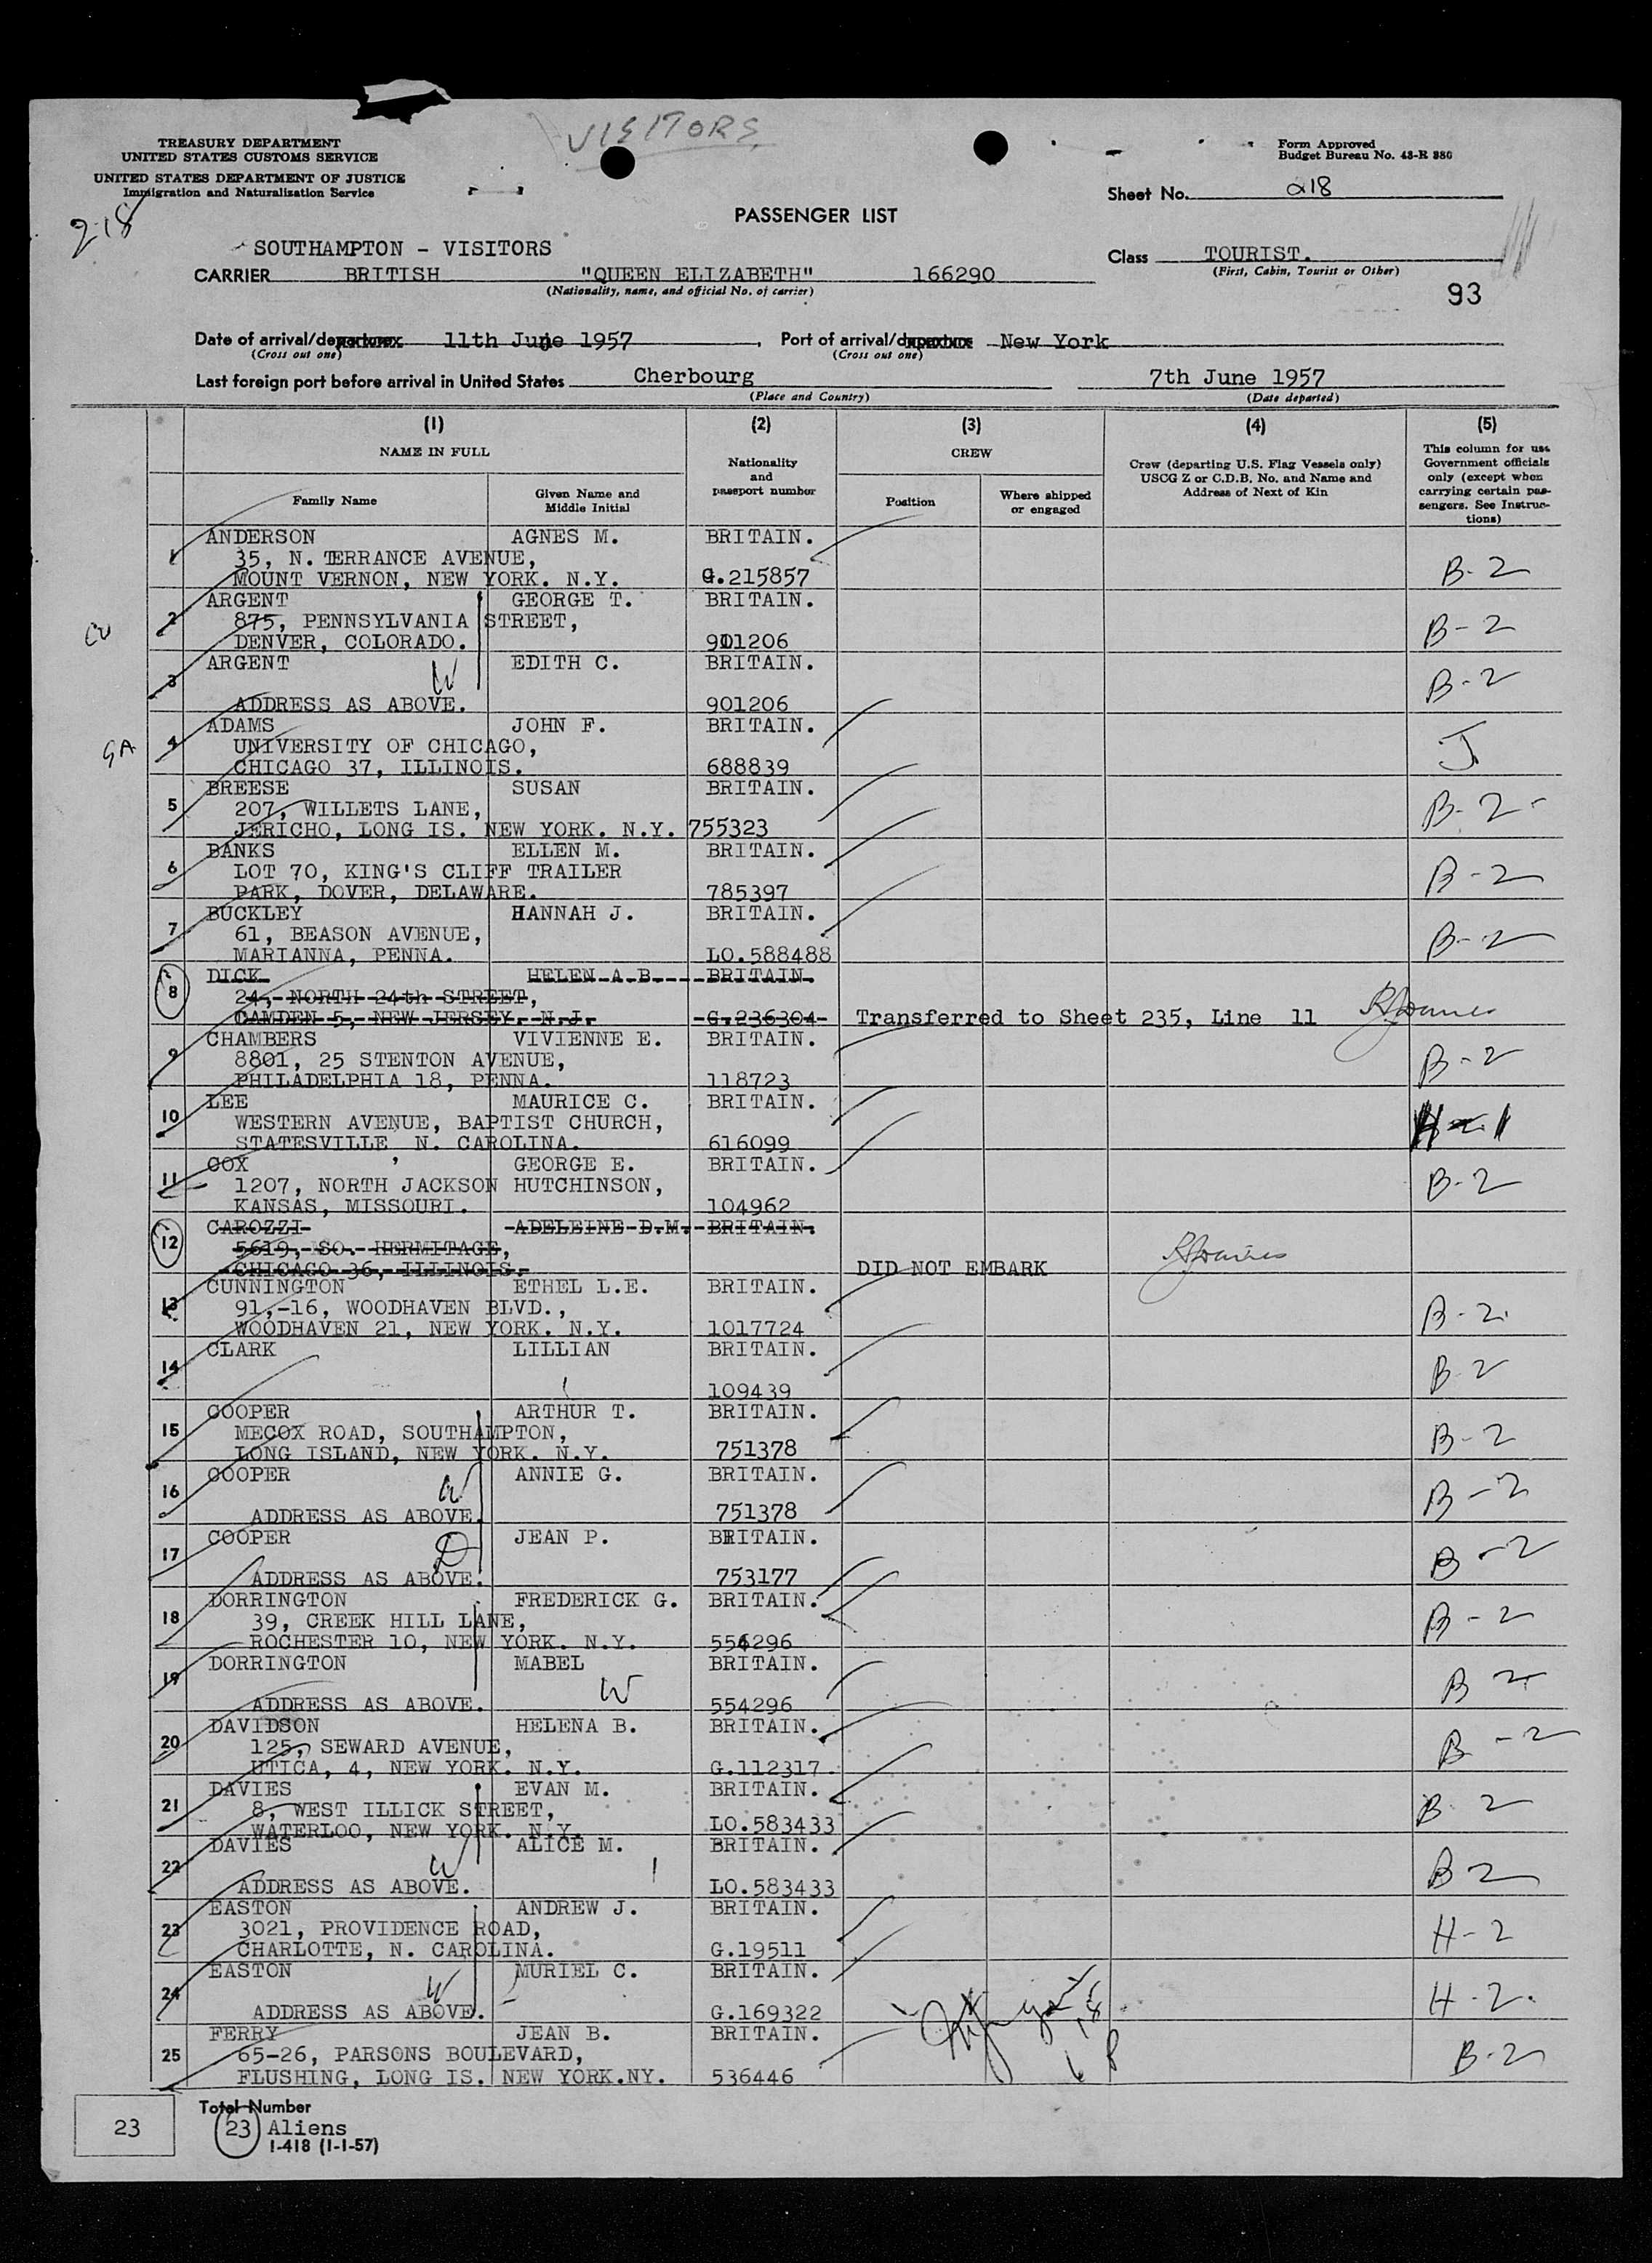 VISITORS
TREASURY DEPARTMENT
UNITED STATES CUSTOMS SERVICE
UNITED STATES DEPARTMENT OF JUSTICE
Immigration and Naturalization Service
218
Form Approved
Budget Bureau No. 43-R 880
Sheet No. 218
PASSENGER LIST
SOUTHAMPTON - VISITORS
Class TOURIST.
(First, Cabin, Tourist or Other)
CARRIER BRITISH "QUEEN ELIZABETH" 166290
(Nationality, name, and official No. of carrier)
93
Date of arrival/departure 11th June 1957, Port of arrival/departure New York
(Cross out one) (Cross out one)
Last foreign port before arrival in United States Cherbourg 7th June 1957
(Place and Country) (Date departed)
(1) (2) (3) (4) (5)
NAME IN FULL
Family Name
Given Name and
Middle Initial
Nationality
and
passport number
CREW
Position
Where shipped
or engaged
Crew (departing U.S. Flag Vessels only)
USCG Z or C.D.B. No. and Name and
Address of Next of Kin
This column for use
Government officials
only (except when
carrying certain pas-
sengers. See Instruc-
tions)
1 ANDERSON AGNES M. BRITAIN.
35, N. TERRANCE AVENUE,
MOUNT VERNON, NEW YORK. N.Y. G.215857 B-2
2 ARGENT GEORGE T. BRITAIN.
875, PENNSYLVANIA STREET,
DENVER, COLORADO. 901206 B-2
3 ARGENT W EDITH C. BRITAIN.
ADDRESS AS ABOVE. 901206 B-2
4 ADAMS JOHN F. BRITAIN.
GA UNIVERSITY OF CHICAGO,
CHICAGO 37, ILLINOIS. 688839 J
5 BREESE SUSAN BRITAIN.
207, WILLETS LANE,
JERICHO, LONG IS. NEW YORK. N.Y. 755323 B-2
6 BANKS ELLEN M. BRITAIN.
LOT 70, KING'S CLIFF TRAILER
PARK, DOVER, DELAWARE. 785397 B-2
7 BUCKLEY HANNAH J. BRITAIN.
61, BEASON AVENUE,
MARIANNA, PENNA. LO.588488 B-2
8 DICK HELEN A.B. BRITAIN.
24, NORTH 24th STREET,
CAMDEN 5, NEW JERSEY. N.J. G.236304 Transferred to Sheet 235, Line 11
9 CHAMBERS VIVIENNE E. BRITAIN.
8801, 25 STENTON AVENUE,
PHILADELPHIA 18, PENNA. 118723 B-2
10 LEE MAURICE C. BRITAIN.
WESTERN AVENUE, BAPTIST CHURCH,
STATESVILLE, N. CAROLINA. 616099 H-1
11 COX GEORGE E. BRITAIN.
1207, NORTH JACKSON HUTCHINSON,
KANSAS, MISSOURI. 104962 B-2
12 CAROZZI ADELEINE D.M. BRITAIN.
5619, SO. HERMITAGE,
CHICAGO 36, ILLINOIS. DID NOT EMBARK
13 CUNNINGTON ETHEL L.E. BRITAIN.
91,-16, WOODHAVEN BLVD.,
WOODHAVEN 21, NEW YORK. N.Y. 1017724 B-2
14 CLARK LILLIAN BRITAIN.
109439 B-2
15 COOPER ARTHUR T. BRITAIN.
MECOX ROAD, SOUTHAMPTON,
LONG ISLAND, NEW YORK. N.Y. 751378 B-2
16 COOPER W ANNIE G. BRITAIN.
ADDRESS AS ABOVE. 751378 B-2
17 COOPER D JEAN P. BRITAIN.
ADDRESS AS ABOVE. 753177 B-2
18 DORRINGTON FREDERICK G. BRITAIN.
39, CREEK HILL LANE,
ROCHESTER 10, NEW YORK. N.Y. 554296 B-2
19 DORRINGTON MABEL BRITAIN.
ADDRESS AS ABOVE. W 554296 B 2
20 DAVIDSON HELENA B. BRITAIN.
125, SEWARD AVENUE,
UTICA, 4, NEW YORK. N.Y. G.112317 B-2
21 DAVIES EVAN M. BRITAIN.
8, WEST ILLICK STREET,
WATERLOO, NEW YORK. N.Y. LO.583433 B 2
22 DAVIES W ALICE M. BRITAIN.
ADDRESS AS ABOVE. LO.583433 B 2
23 EASTON ANDREW J. BRITAIN.
3021, PROVIDENCE ROAD,
CHARLOTTE, N. CAROLINA. G.19511 H-2
24 EASTON W MURIEL C. BRITAIN.
ADDRESS AS ABOVE. G.169322 H-2.
25 FERRY JEAN B. BRITAIN.
65-26, PARSONS BOULEVARD,
FLUSHING, LONG IS. NEW YORK.NY. 536446 B-2
23
Total Number
23 Aliens
I-418 (1-1-57)